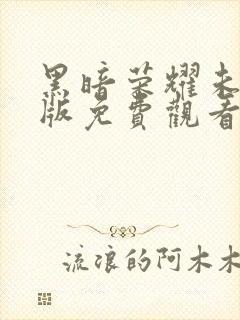 黑暗荣耀未
版免費觀看
流浪的阿木木